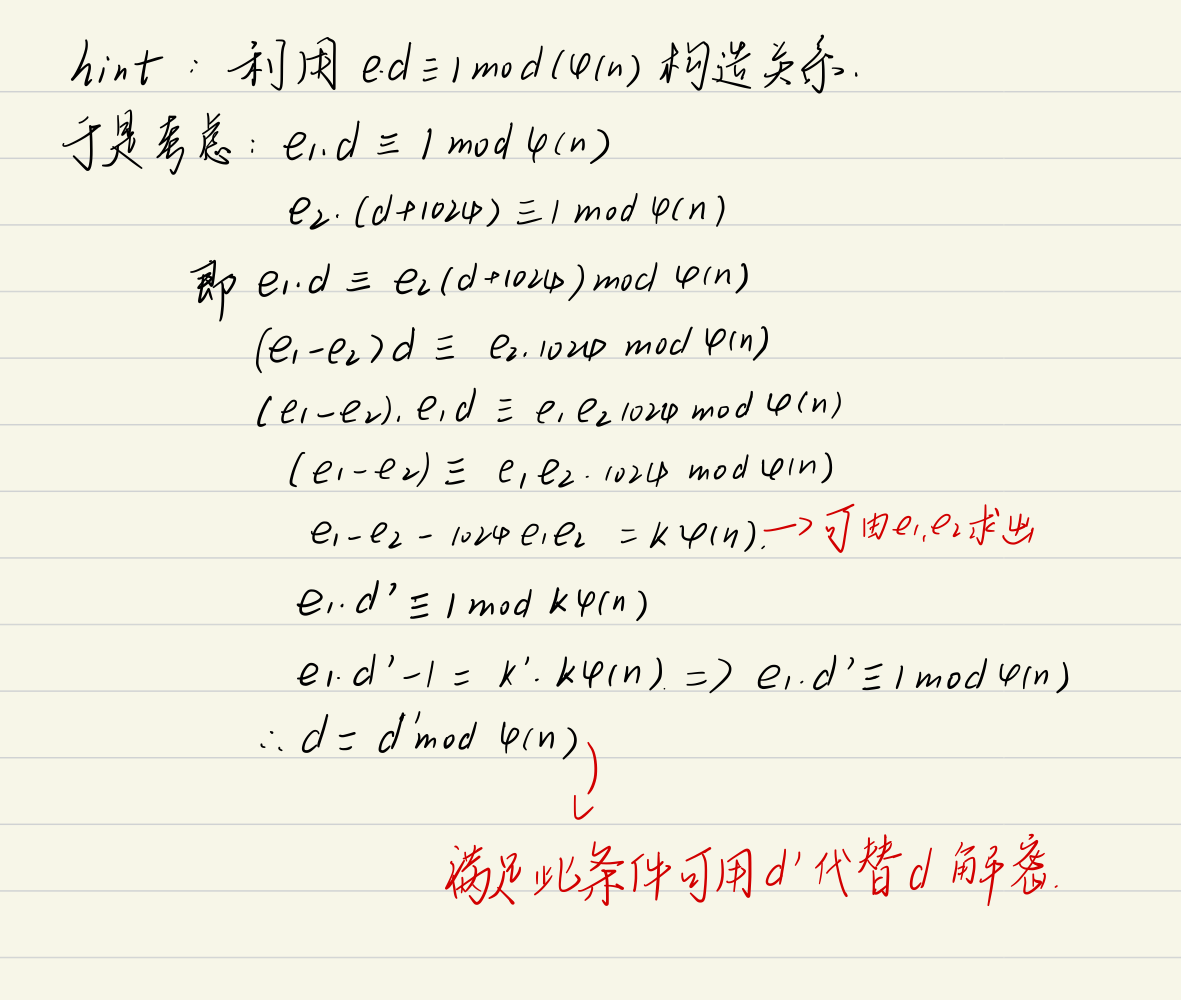 hint：利用 e·d≡1 mod(φ(n) 构造关系.
于是考虑：e₁·d ≡ 1 mod φ(n)
e₂·(d+1024) ≡ 1 mod φ(n)
即 e₁·d ≡ e₂(d+1024) mod φ(n)
(e₁-e₂)d ≡ e₂·1024 mod φ(n)
(e₁-e₂)·e₁d ≡ e₁e₂1024 mod φ(n)
(e₁-e₂) ≡ e₁e₂·1024 mod φ(n)
e₁-e₂-1024e₁e₂ = kφ(n). → 可由e₁,e₂求出
e₁·d' ≡ 1 mod kφ(n)
e₁·d'-1 = k'·kφ(n). => e₁·d' ≡ 1 mod φ(n)
∴ d = d' mod φ(n)
满足此条件可用d'代替d解密.